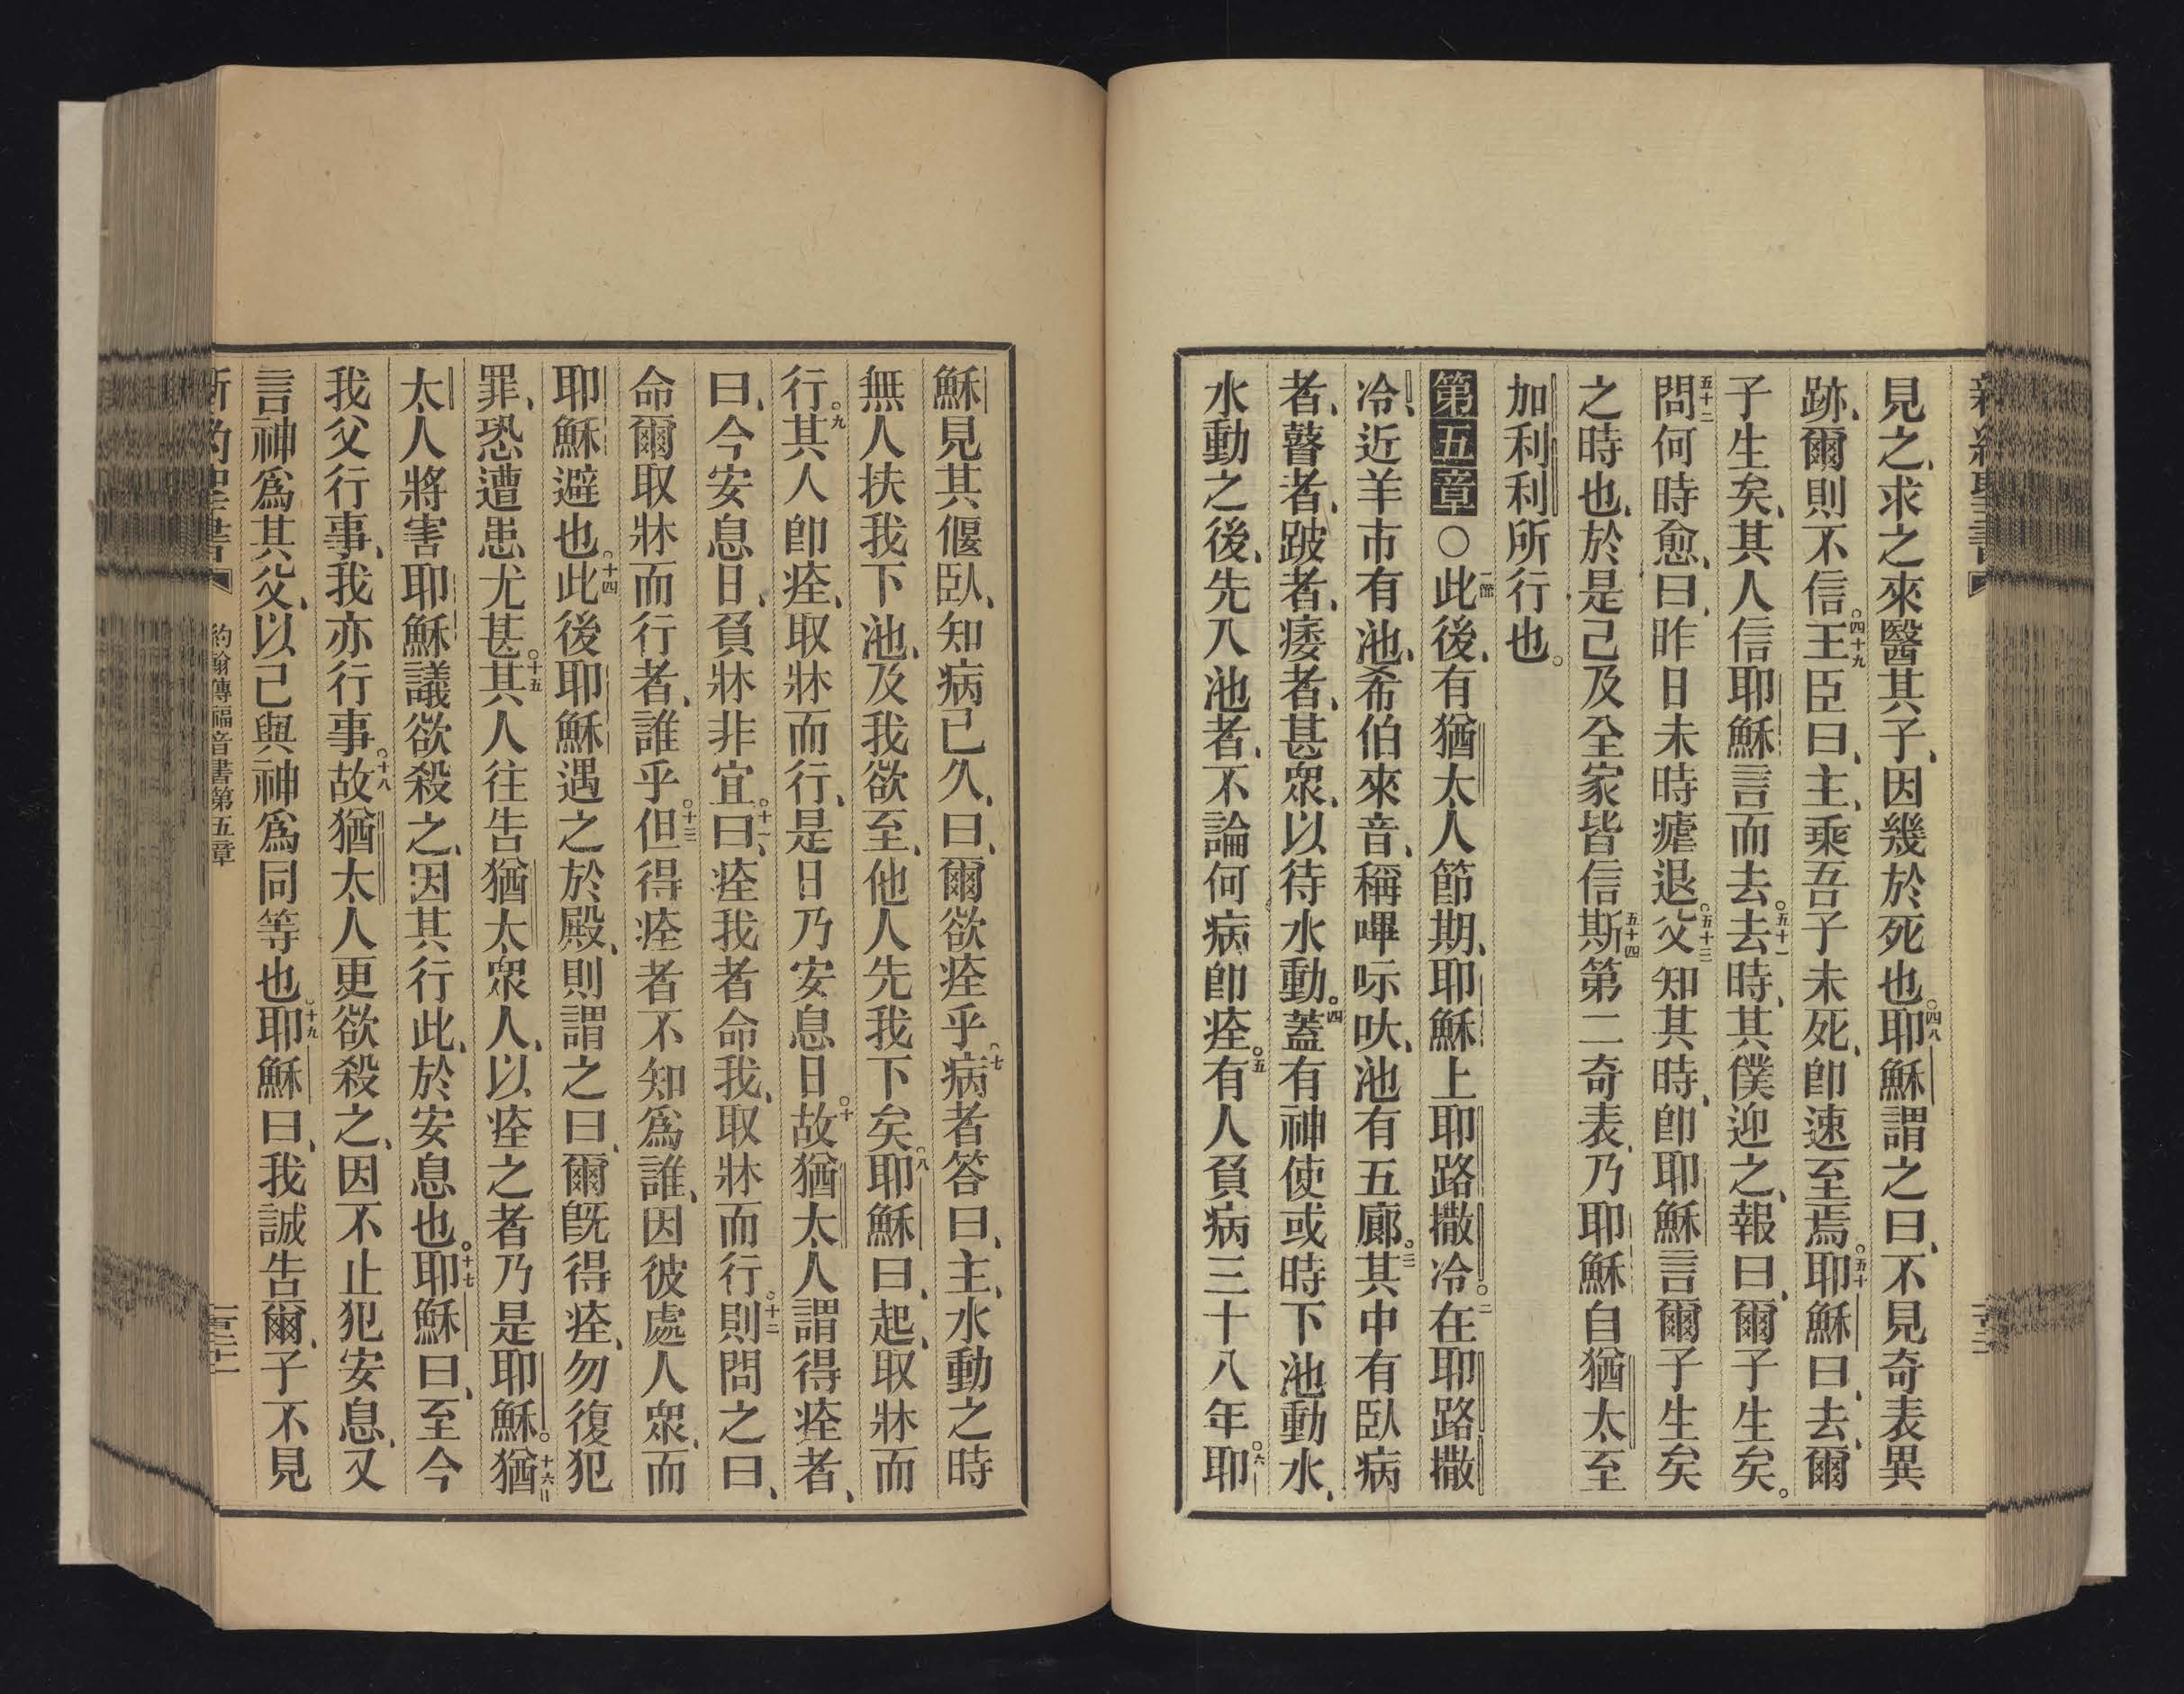 見之、求之來醫其子、因幾於死也。四八耶穌謂之曰、不見奇表異
跡、爾則不信。四十九王臣曰、主、乘吾子未死、卽速至焉。五十耶穌曰、去、爾
子生矣、其人信耶穌言而去。五十一去時、其僕迎之、報曰、爾子生矣。
五十二問何時愈、曰、昨日未時瘧退。五十三父知其時、卽耶穌言爾子生矣
之時也、於是己及全家皆信五十四斯第二奇表、乃耶穌自猶太至
加利利所行也。
第五章〇一此後、有猶太人節期、耶穌上耶路撒冷。二在耶路撒
冷、近羊市有池、希伯來音、稱嗶㖿吠、池有五廊。三其中有臥病
者、瞽者、跛者、痿者、甚衆、以待水動。四蓋有神使或時下池動水、
水動之後、先入池者、不論何病卽痊。五有人負病三十八年六耶
穌見其偃臥、知病已久、曰、爾欲痊乎。七病者答曰、主、水動之時
無人扶我下池、及我欲至、他人先我下矣。八耶穌曰、起、取牀而
行。九其人卽痊、取牀而行、是日乃安息日。十故猶太人謂得痊者、
曰、今安息日、負牀非宜。十一曰、痊我者命我、取牀而行。十二則問之曰、
命爾取牀而行者、誰乎。十三但得痊者不知爲誰、因彼處人衆、而
耶穌避也。十四此後耶穌遇之於殿、則謂之曰、爾旣得痊、勿復犯
罪、恐遭患尤甚。十五其人往告猶太衆人、以痊之者乃是耶穌。十六猶
太人將害耶穌議欲殺之、因其行此、於安息也。十七耶穌曰、至今
我父行事、我亦行事。十八故猶太人更欲殺之、因不止犯安息、又
言神爲其父、以己與神爲同等也。十九耶穌曰、我誠告爾、子不見
約翰傳福音書第五章